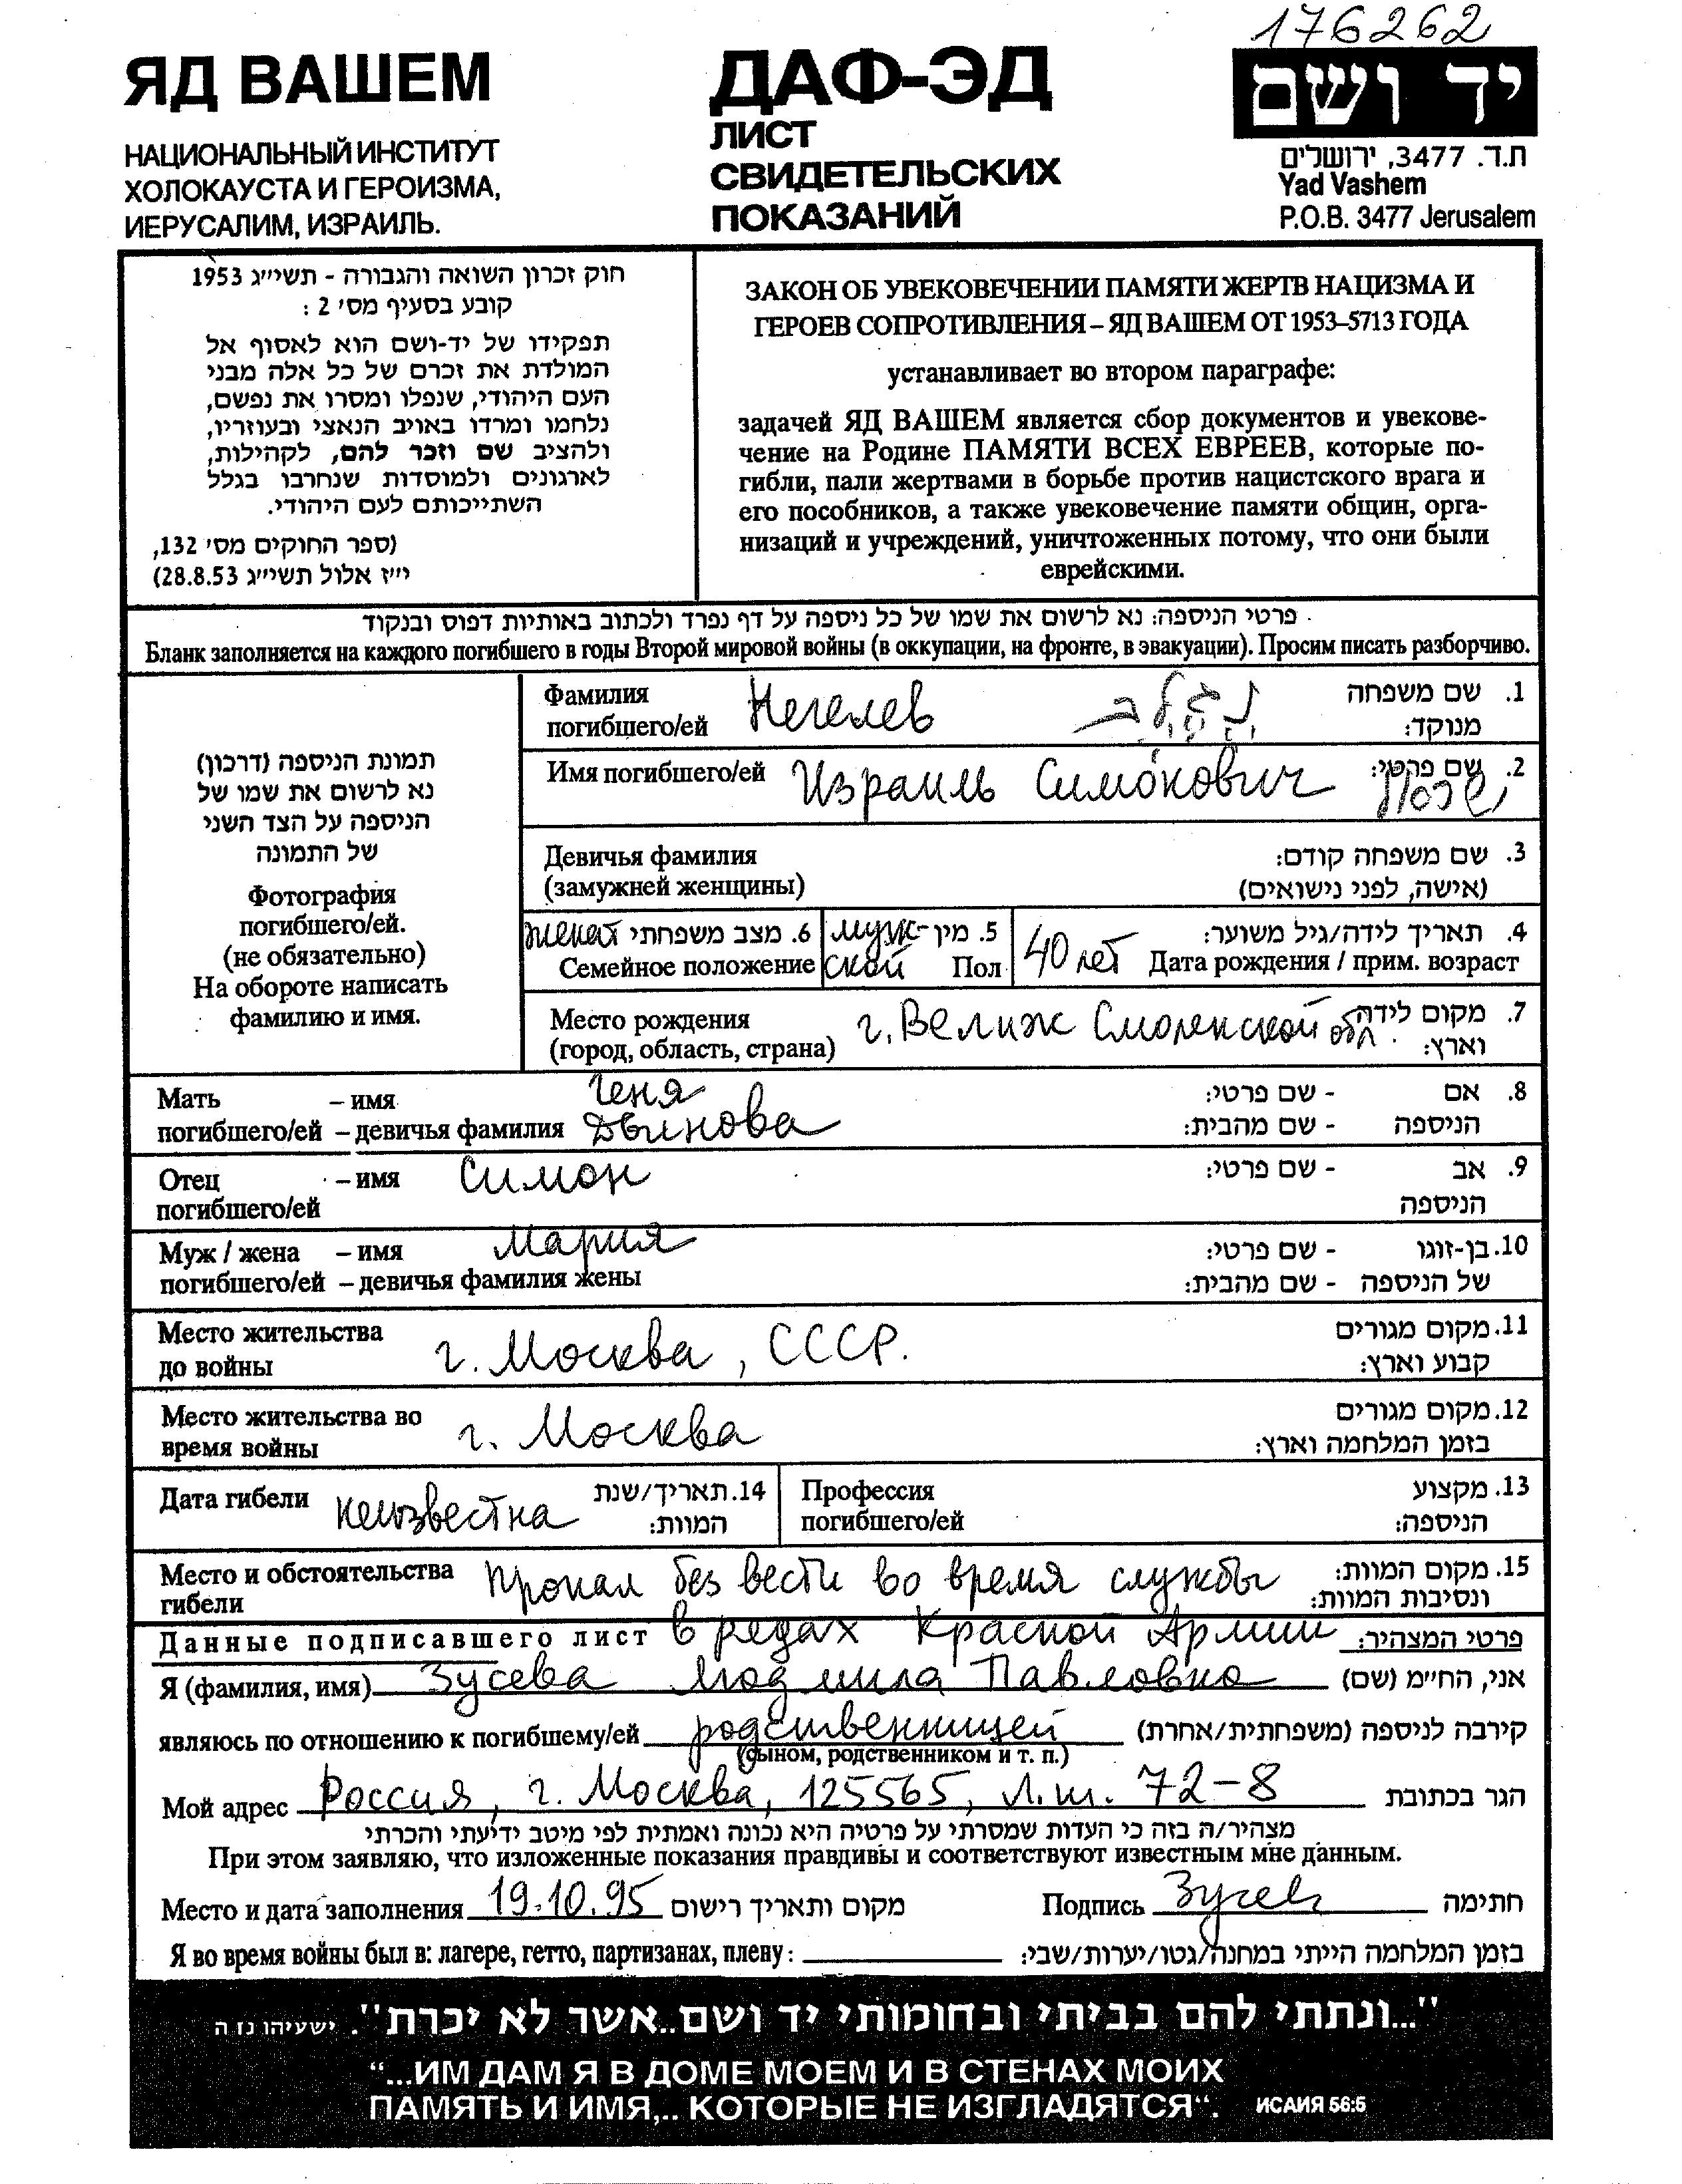 176262
ЯД ВАШЕМ
НАЦИОНАЛЬНЫЙ ИНСТИТУТ
ХОЛОКАУСТА И ГЕРОИЗМА,
ИЕРУСАЛИМ, ИЗРАИЛЬ.
ДАФ-ЭД
ЛИСТ
СВИДЕТЕЛЬСКИХ
ПОКАЗАНИЙ
יד ושם
ת.ד. 3477, ירושלים
Yad Vashem
P.O.B. 3477 Jerusalem
חוק זכרון השואה והגבורה - תשי״ג 1953
קובע בסעיף מס׳ 2 :
תפקידו של יד-ושם הוא לאסוף אל
המולדת את זכרם של כל אלה מבני
העם היהודי, שנפלו ומסרו את נפשם,
נלחמו ומרדו באויב הנאצי ובעוזריו,
ולהציב שם וזכר להם, לקהילות,
לארגונים ולמוסדות שנחרבו בגלל
השתייכותם לעם היהודי.
(ספר החוקים מס׳ 132,
י״ז אלול תשי״ג 28.8.53)
ЗАКОН ОБ УВЕКОВЕЧЕНИИ ПАМЯТИ ЖЕРТВ НАЦИЗМА И
ГЕРОЕВ СОПРОТИВЛЕНИЯ – ЯД ВАШЕМ ОТ 1953–5713 ГОДА
устанавливает во втором параграфе:
задачей ЯД ВАШЕМ является сбор документов и увекове-
чение на Родине ПАМЯТИ ВСЕХ ЕВРЕЕВ, которые по-
гибли, пали жертвами в борьбе против нацистского врага и
его пособников, а также увековечение памяти общин, орга-
низаций и учреждений, уничтоженных потому, что они были
еврейскими.
פרטי הניספה: נא לרשום את שמו של כל ניספה על דף נפרד ולכתוב באותיות דפוס ובנקוד
Бланк заполняется на каждого погибшего в годы Второй мировой войны (в оккупации, на фронте, в эвакуации). Просим писать разборчиво.
תמונת הניספה (דרכון)
נא לרשום את שמו של
הניספה על הצד השני
של התמונה
Фотография
погибшего/ей.
(не обязательно)
На обороте написать
фамилию и имя.
Фамилия Негелев 1. שם משפחה
погибшего/ей מנוקד:
Имя погибшего/ей Израиль Симонович 2. שם פרטי:
Девичья фамилия 3. שם משפחה קודם:
(замужней женщины) (אישה, לפני נישואים)
женат 6. מצב משפחתי муж- 5. מין 4. תאריך לידה/גיל משוער:
Семейное положение ской Пол 40 лет Дата рождения / прим. возраст
Место рождения г. Велиж Смоленской обл. 7. מקום לידה
(город, область, страна) וארץ:
Мать – имя Геня 8. אם - שם פרטי:
погибшего/ей – девичья фамилия Двинова הניספה - שם מהבית:
Отец – имя Симон 9. אב - שם פרטי:
погибшего/ей הניספה
Муж / жена – имя Мария 10. בן-זוגו - שם פרטי:
погибшего/ей – девичья фамилия жены של הניספה - שם מהבית:
Место жительства г. Москва, СССР. 11. מקום מגורים
до войны קבוע וארץ:
Место жительства во г. Москва 12. מקום מגורים
время войны בזמן המלחמה וארץ:
Дата гибели неизвестна 14. תאריך/שנת המוות:
Профессия 13. מקצוע
погибшего/ей הניספה:
Место и обстоятельства пропал без вести во время службы 15. מקום המוות:
гибели ונסיבות המוות:
Данные подписавшего лист в рядах Красной Армии פרטי המצהיר:
Я (фамилия, имя) Зусева Людмила Павловна אני, הח״מ (שם)
являюсь по отношению к погибшему/ей родственницей קירבה לניספה (משפחתית/אחרת)
(сыном, родственником и т. п.)
Мой адрес Россия, г. Москва, 125565, Л.ш. 72-8 הגר בכתובת
מצהיר/ה בזה כי העדות שמסרתי על פרטיה היא נכונה ואמתית לפי מיטב ידיעתי והכרתי
При этом заявляю, что изложенные показания правдивы и соответствуют известным мне данным.
Место и дата заполнения 19.10.95 מקום ותאריך רישום Подпись Зусев חתימה
Я во время войны был в: лагере, гетто, партизанах, плену: בזמן המלחמה הייתי במחנה/גטו/יערות/שבי:
"...ונתתי להם בביתי ובחומותי יד ושם..אשר לא יכרת". ישעיהו נז ה
“...ИМ ДАМ Я В ДОМЕ МОЕМ И В СТЕНАХ МОИХ
ПАМЯТЬ И ИМЯ,.. КОТОРЫЕ НЕ ИЗГЛАДЯТСЯ“. ИСАИЯ 56:5